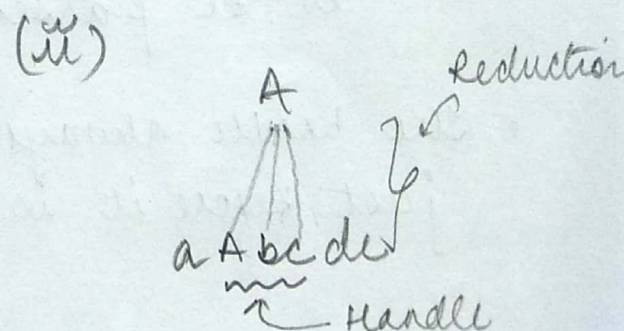 (ii)
Reduction
A
a A b c d e
Handle